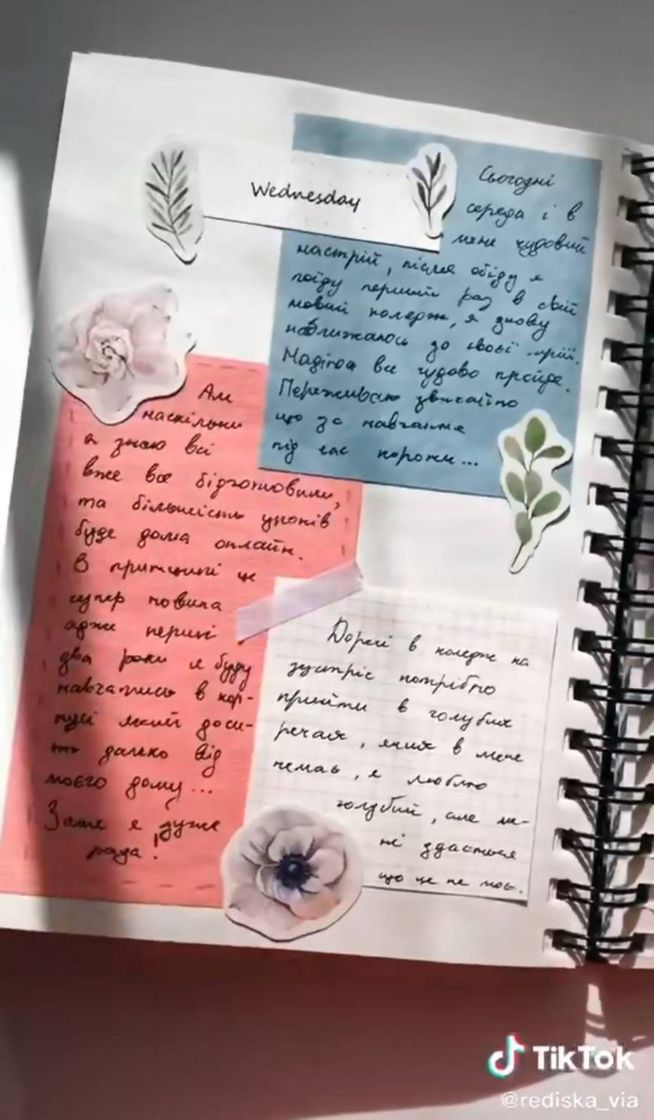 Wednesday
Сьогодні
середа і в
мене чудовий
настрій, після обіду я
поїду перший раз в свій
новий коледж, я знову
наближаюсь до своєї мрії.
Надіюсь все чудово пройде.
Переживаю звичайно
що за навчання
під час корони...
Але
наскільки
я знаю всі
вже все підготовили,
та більшість уроків
буде дома онлайн.
В принципі це
супер новина
адже перші
два роки я буду
навчатись в кор-
пусі який доси-
ть далеко від
моєго дому...
Зате я дуже
рада!
Доречі в коледж на
зустріч потрібно
прийти в голубих
речах, яких в мене
немає, я люблю
голубий, але ме-
ні здається
що це не моє.
TikTok
@rediska_via